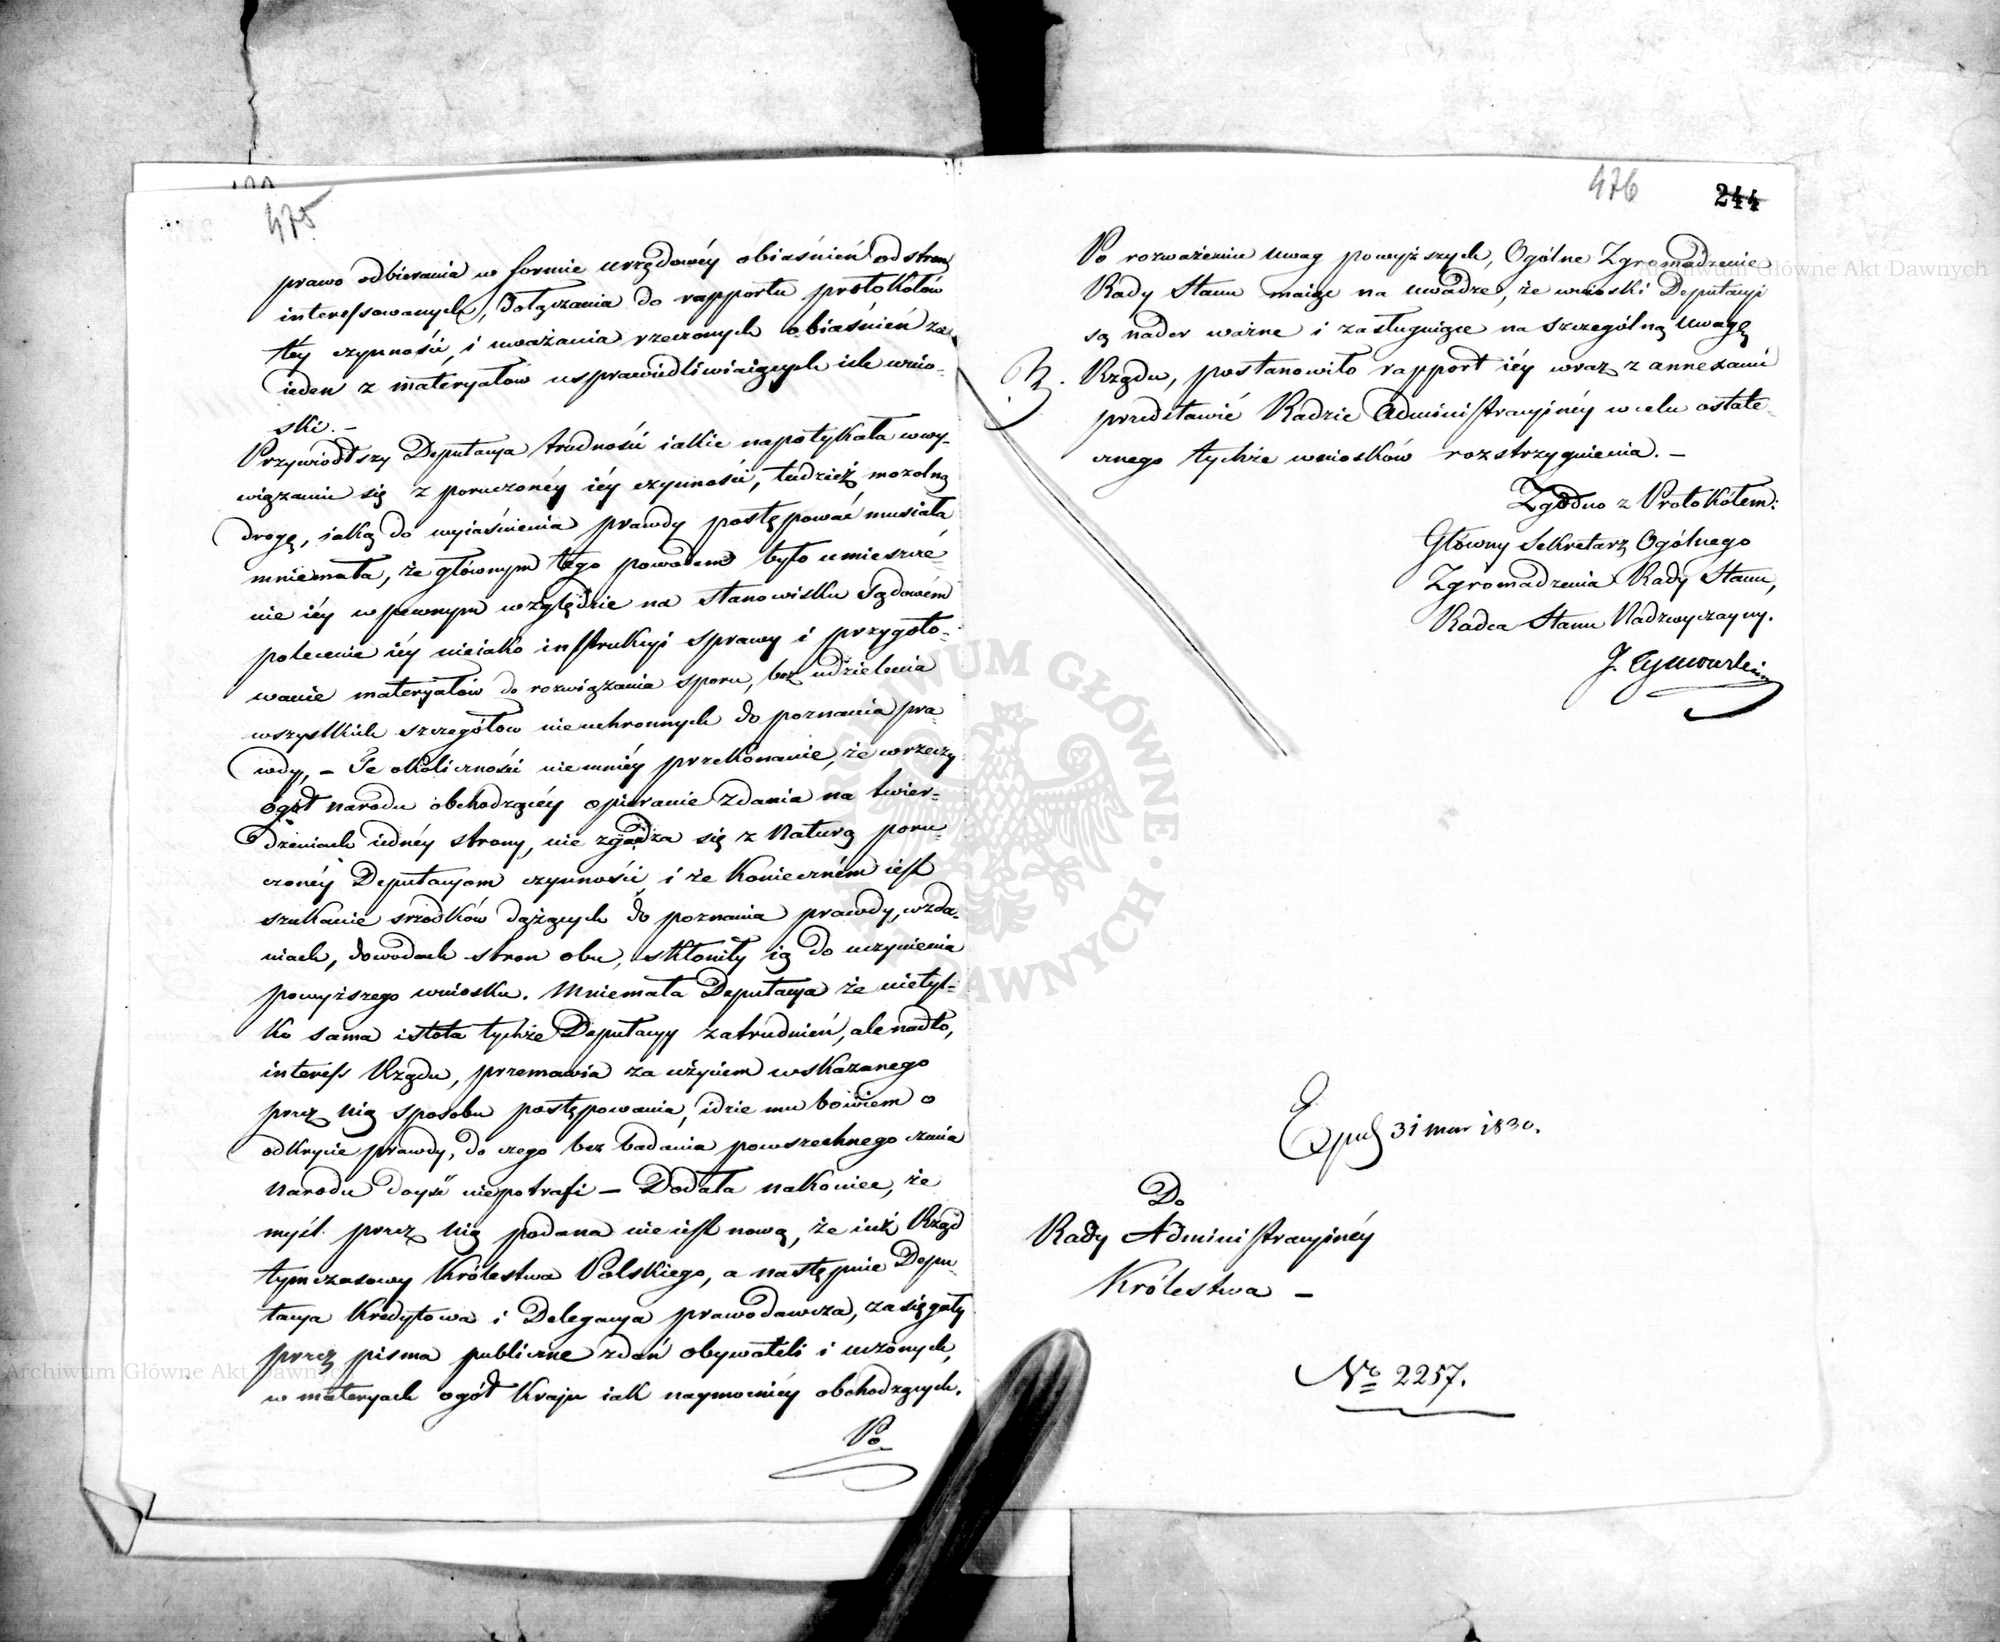 475
prawo odbierania w formie urzędowéy obiaśnień od stron
interessowanych, dołączania do rapportu protokołów
téy czynności, i uważania rzeczonych obiaśnień za
ieden z materyałów usprawiedliwiaiących ich wnio-
ski. –
Przywiódłszy Deputacya trudności iakie napotykała w wy-
wiązaniu się z poruczonéy iéy czynności, tudzież mozolną
drogę, iaką do wyiaśnienia prawdy postępować musiała
mniemała, że głównym tego powodem było umieszcze-
nie iéy w pewnym względzie na stanowisku Sądowém
polecenie iéy nieiako instrukcyi sprawy i przygoto-
wanie materyałów do rozwiązania sporu, bez udzielenia
wszystkich szczegółów nieuchronnych do poznania pra-
wdy, – Te okoliczności niemniéy przekonanie, że w rzeczy
ogół narodu obchodzącéy opieranie zdania na twier-
dzeniach iednéy strony, nie zgadza się z naturą poru-
czonéy Deputacyom czynności, i że konieczném iest
szukanie srzodków dążących do poznania prawdy, w zda-
niach, dowodach stron obu, skłoniły ią do uczynienia
powyższego wniosku. Mniemała Deputacya że nietyl-
ko sama istota tychże Deputacyy zatrudnień, ale nadto,
interess Rządu, przemawia za użyciem wskazanego
przez nią sposobu postępowania, idzie mu bowiem o
odkrycie prawdy, do czego bez badania powszechnego zdania
Narodu doyść niepotrafi – Dodała nakoniec, że
myśl przez nią podana nie iest nową, że iuż Rząd
tymczasowy Królestwa Polskiego, a następnie Depu-
tacya Kredytowa i Delegacya prawodawcza, zasięgały
przez pisma publiczne zdań obywateli i uczonych,
w materyach ogół Kraju iak naymocniéy obchodzących.
Po
476
244
Po rozważeniu uwag powyższych, Ogólne Zgromadzenie
Rady Stanu maiąc na uwadze, że wnioski Deputacyi
są nader ważne i zasługuiące na szczególną uwagę
Rządu, postanowiło rapport iéy wraz z annexami
przedstawić Radzie Administracyinéy w celu ostate-
cznego tychże wniosków rozstrzygnienia. –
Zgodno z Protokółem:
Główny Sekretarz Ogólnego
Zgromadzenia Rady Stanu,
Radca Stanu Nadzwyczayny.
J. Tymowski
31 mar 1830.
Do
Rady Administracyinéy
Królestwa –
No 2257.
Archiwum Główne Akt Dawnych
Archiwum Główne Akt Dawnych
ARCHIWUM GŁÓWNE AKT DAWNYCH